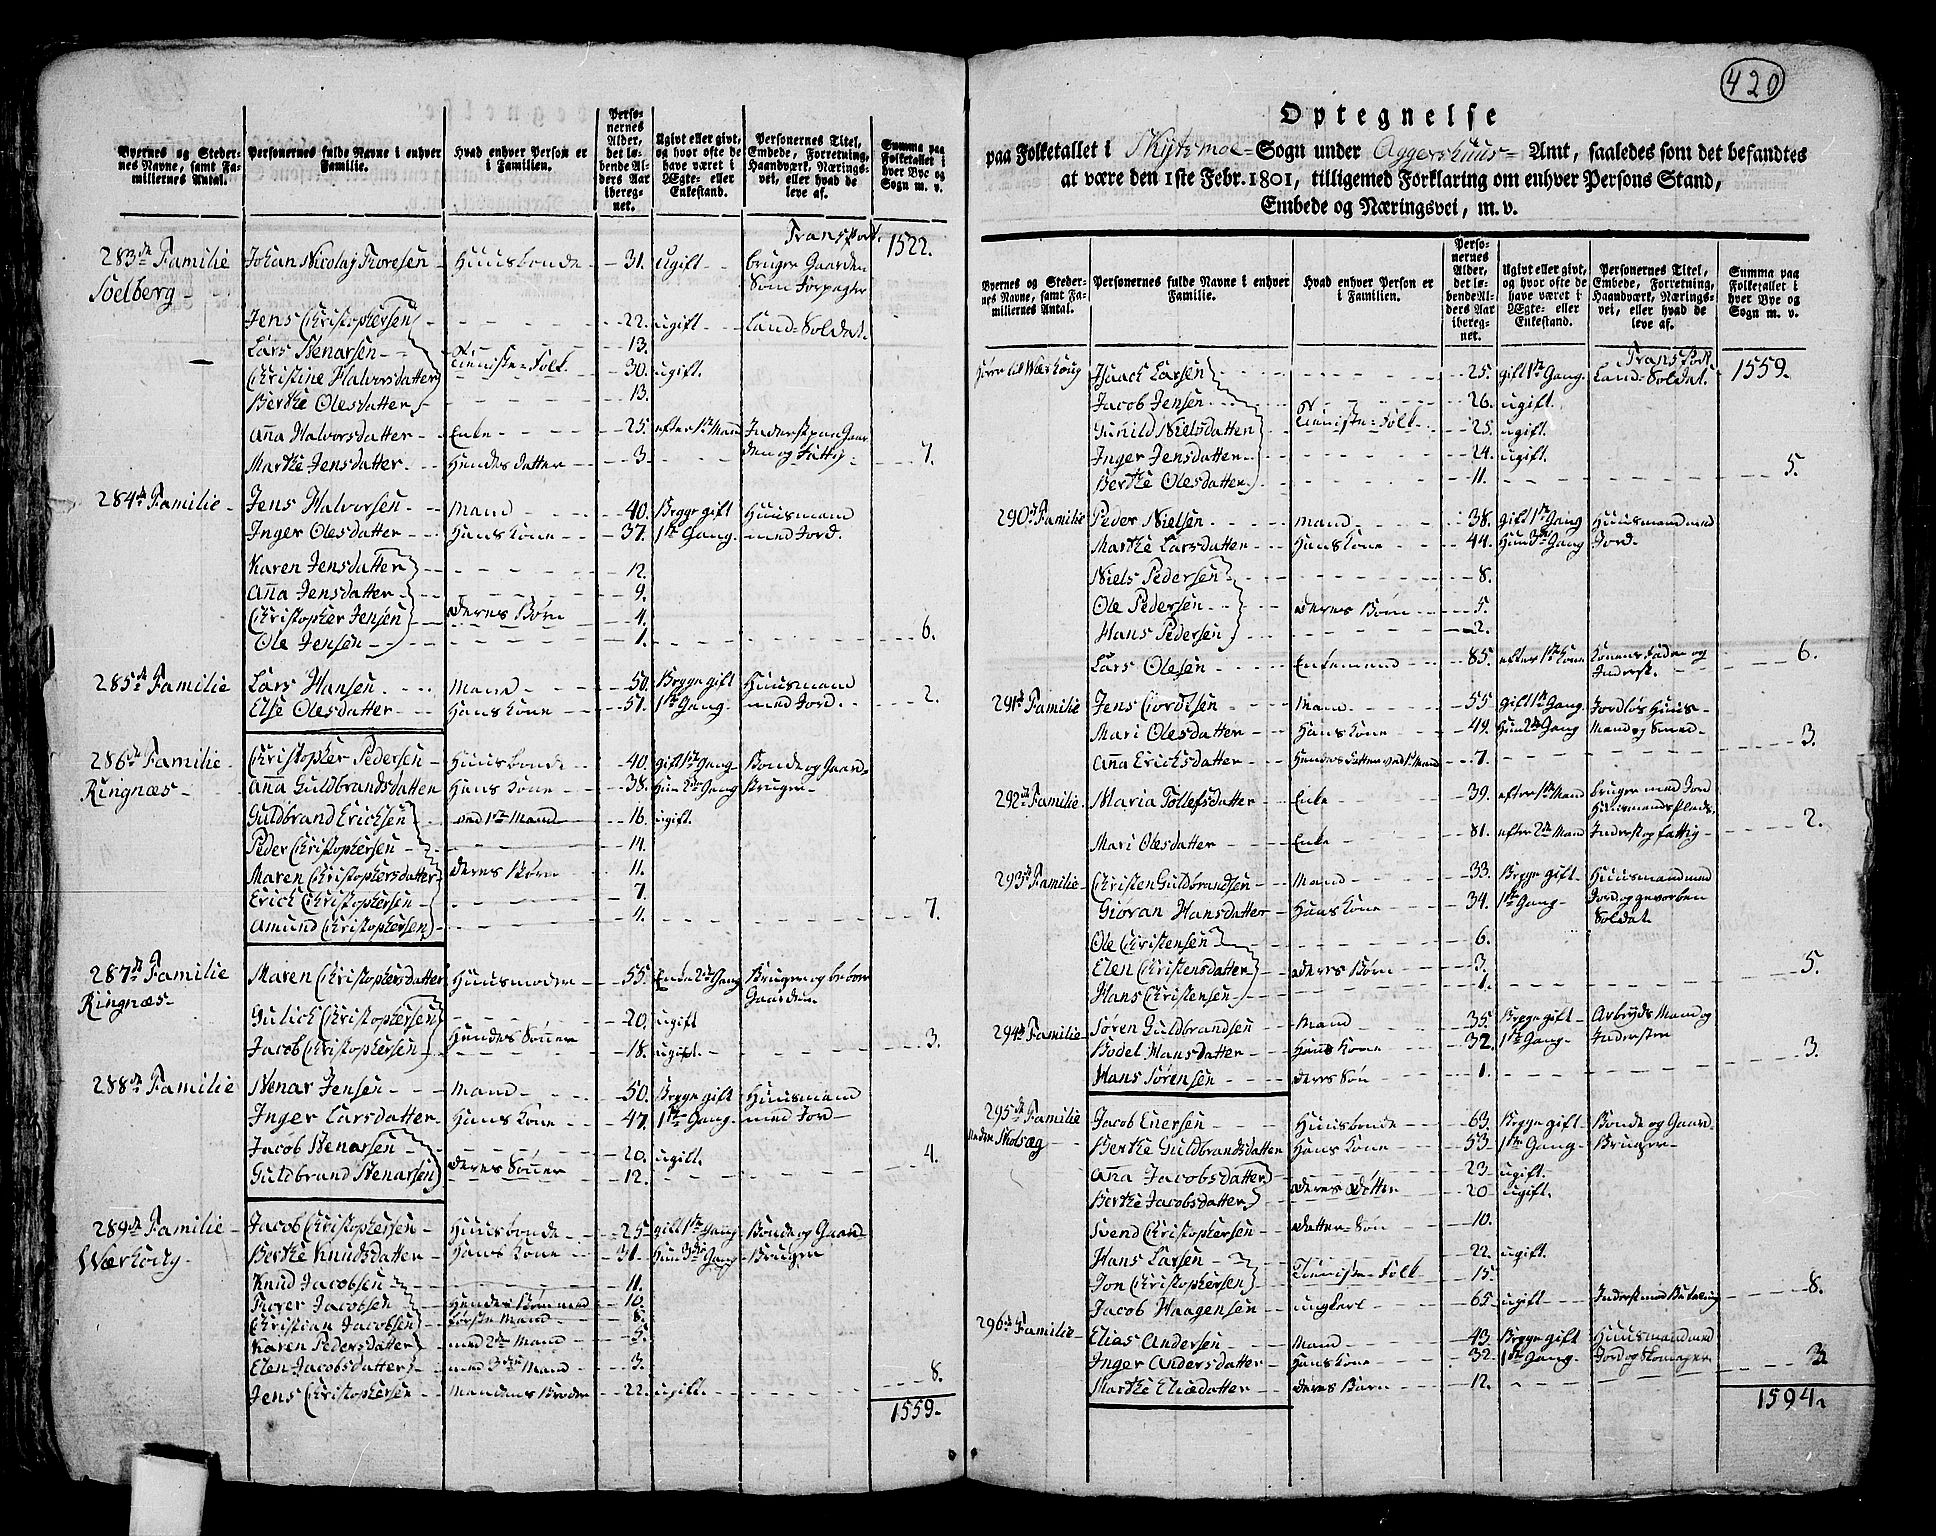 Byernes og Steder-
nes Navne, samt Fa-
miliernes Antal.
Personernes fulde Navne i enhver
Familie.
Hvad enhver Person er
i Familien.
Perso-
nernes
Alder,
det lø-
bende Al-
ders Aar
ibereg-
net.
Ugivt eller givt,
og hvor ofte de
have været i
Ægte- eller
Enkestand.
Personernes Titel,
Embede, Forretning,
Haandværk, Nærings-
vei, eller hvad de
leve af.
Summa paa
Folketallet i
hver Bye og
Sogn m. v.
Transport. 1522.
283de Familie Johan Nicolaj Thoresen Huusbonde 31. ugift bruger Gaarden
Soelberg som
Jens Christophersen 22. ugift Land-Soldat.
Lars Stenarsen 13.
Christine Halvorsdatter Tienniste-Folk 30. ugift.
Berthe Olesdatter 13.
Anna Halvorsdatter Enke 25. efter 1ste Mand Inderst paa Gaar-
Marthe Jensdatter Hendes datter 3. den og Fattig 7.
284de Familie Jens Halvorsen Mand 40. Begge gift Huusmand
Inger Olesdatter Hans Kone 37. 1ste Gang med Jord.
Karen Jensdatter 12.
Anna Jensdatter 9.
Christopher Jensen deres Børn 4.
Ole Jensen 1. 6.
285de Familie Lars Hansen Mand 50. Begge gift Huusmand
Else Olesdatter Hans Kone 51. 1ste Gang med Jord. 2.
286de Familie Christopher Pedersen Huusbonde 40. gift 1ste Gang Bonde og Gaard-
Ringnæs Anna Guldbrandsdatter Hans Kone 38. Hun 2den Gang bruger
Guldbrand Erichsen ved 1ste Mand 16. ugift.
Peder Christophersen 14.
Maren Christophersdatter deres Børn 11.
Erich Christophersen 7.
Amund Christophersen 4. 7.
287de Familie Maren Christophersdatter Huusmoder 55. Enke 2den Gang Bruger og beboer
Ringnæs Gaarden
Gulich Christophersen 20. ugift
Jacob Christophersen Hendes Sønner 18. ugift. 3.
288de Familie Stenar Jensen Mand 50. Begge gift Huusmand
Inger Larsdatter Hans Kone 47. 1ste Gang med Jord
Jacob Stenarsen 20. ugift.
Guldbrand Stenarsen deres Sønner 12. 4.
289de Familie Jacob Christophersen Huusbonde 25. gift 1ste Gang Bonde og Gaard-
Berthe Knudsdatter Hans Kone 31. Hun 3die Gang Bruger
Knud Jacobsen 11.
Thorer Jacobsen Hendes Børn med 10.
Christian Jacobsen første Mand 8.
Karen Pedersdatter med 2den Mand 5.
Elen Jacobsdatter med 3die Mand 3.
Jens Christophersen Mandens Broder 22. ugift. 8.
1559.
420
Optegnelse
paa Folketallet i Skydsmoe Sogn under Aggershuus Amt, saaledes som det befandtes
at være den 1ste Febr. 1801, tilligemed Forklaring om enhver Persons Stand,
Embede og Næringsvei, m. v.
Byernes og Steder-
nes Navne, samt Fa-
miliernes Antal.
Personernes fulde Navne i enhver
Familie.
Hvad enhver Person er
i Familien.
Perso-
nernes
Alder,
det lø-
bende Al-
ders Aar
ibereg-
net.
Ugivt eller givt,
og hvor ofte de
have været i
Ægte- eller
Enkestand.
Personernes Titel,
Embede, Forretning,
Haandværk, Nærings-
vei, eller hvad de
leve af.
Summa paa
Folketallet i
hver Bye og
Sogn m. v.
Transport 1559.
Isaach Larsen 25. gift 1ste Gang Land-Soldat.
Jacob Jensen 26. ugift.
Gunild Nielsdatter Tienniste-Folk 25. ugift.
Inger Jensdatter 24. ugift.
Berthe Olesdatter 11. 5.
290de Familie Peder Nielsen Mand 38. gift 1ste Gang Huusmand med
Marthe Larsdatter Hans Kone 44. Hun 3die Gang Jord.
Niels Pedersen 8.
Ole Pedersen deres Børn 5.
Hans Pedersen 2.
Lars Olesen Enkemand 85. efter 1ste Kone Konens Fader og
Inderst. 6.
291de Familie Jens Mand 55 gift 1ste Gang Jordløs Huus-
Mari Olesdatter Hans Kone 49. Hun 2den Gang Mand og Smed
Anna Erichsdatter Hendes datter ved 1ste Mand 7. 3.
292de Familie Maria Tollefsdatter Enke 39. efter 1ste Mand bruger med Jord
Huusmands Plads.
Mari Olesdatter Enke 81. efter 2den Mand Inderst og fattig 2.
293de Familie Christen Guldbrandsen Mand 33. Begge gift Huusmand med
Giøran Hansdatter Hans Kone 34. 1ste Gang Jord og gevorben
Soldat.
Ole Christensen 6.
Elen Christensdatter deres Børn 3.
Hans Christensen 1. 5.
294de Familie Søren Guldbrandsen Mand 35. Begge gift Arbeyds Mand og
Bodel Hansdatter Hans Kone 32. 1ste Gang Inderster
Hans Sørensen deres Søn 1. 3.
295de Familie Jacob Huusbonde 63. Begge gift Bonde og Gaard-
Berthe Guldbrandsdatter Hans Kone 53 1ste Gang Bruger
Anna Jacobsdatter 23 ugift
Berthe Jacobsdatter deres døtter 20 ugift.
Svend Christophersen datter-Søn 10.
Hans Larsen 22. ugift.
Jon Christophersen Tienniste-Folk 15.
Jacob Haagensen ungkarl 65 ugift Inderst 8.
296de Familie Elias Andersen Mand 43. Begge gift Huusmand med
Inger Andersdatter Hans Kone 32. 1ste Gang Jord og Skomager 3.
Marthe Eliædatter deres Barn 12.
1594.